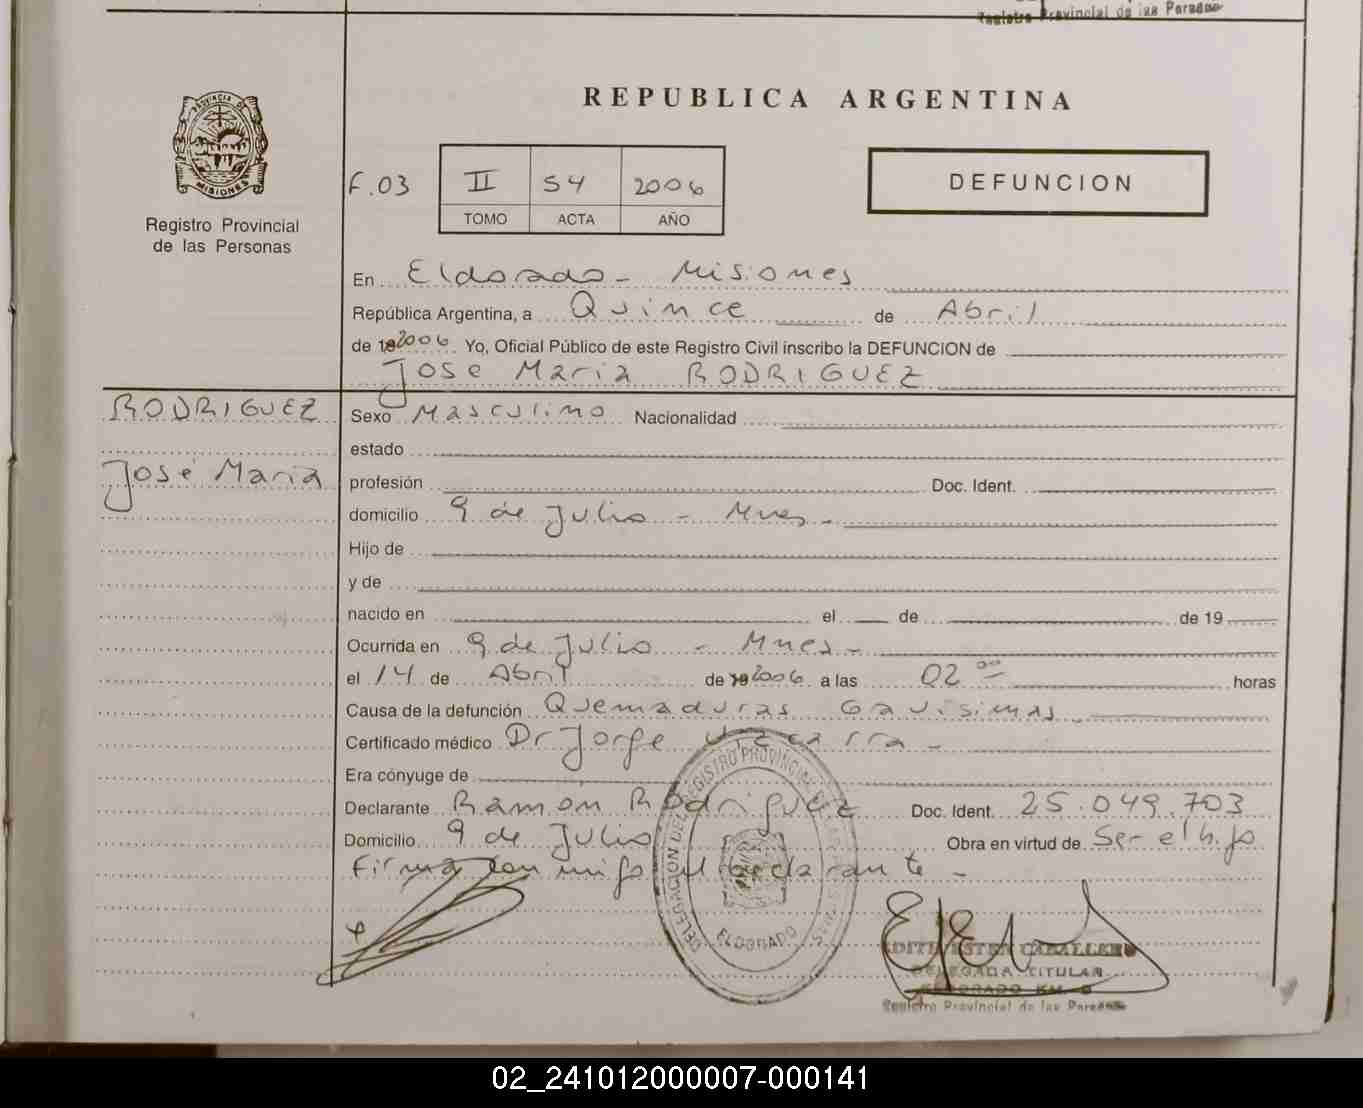 Registro Provincial de las Personas
PROVINCIA DE
MISIONES
Registro Provincial
de las Personas
REPUBLICA ARGENTINA
F.03 II 54 2006
TOMO ACTA AÑO
DEFUNCION
En Eldorado - Misiones
República Argentina, a Quince de Abril
de 2006 Yo, Oficial Público de este Registro Civil inscribo la DEFUNCION de
Jose Maria RODRIGUEZ
RODRIGUEZ
José Maria
Sexo Masculino Nacionalidad
estado
profesión Doc. Ident.
domicilio 9 de Julio - Mnes -
Hijo de
y de
nacido en el de de 19
Ocurrida en 9 de Julio - Mnes -
el 14 de Abril de 2006 a las 02 00 horas
Causa de la defunción Quemaduras Gavisimas -
Certificado médico Dr Jorge -
Era cónyuge de
Declarante Ramón Rodriguez Doc. Ident. 25.049.703
Domicilio 9 de Julio Obra en virtud de Ser el hijo
Firma con migo el declarante -
DELEGACION DEL REGISTRO PROVINCIAL DE LAS PERSONAS
ELDORADO
CABALLERO
DELEGADA TITULAR
ELDORADO KM 9
Registro Provincial de las Personas
02_241012000007-000141